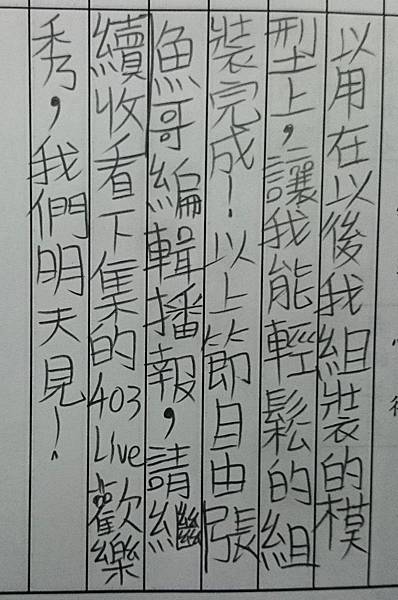 以用在以後我組裝的模
型上，讓我能輕鬆的組
裝完成！以上節目由張
魚哥編輯播報，請繼
續收看下集的403Live歡樂
秀，我們明天見！